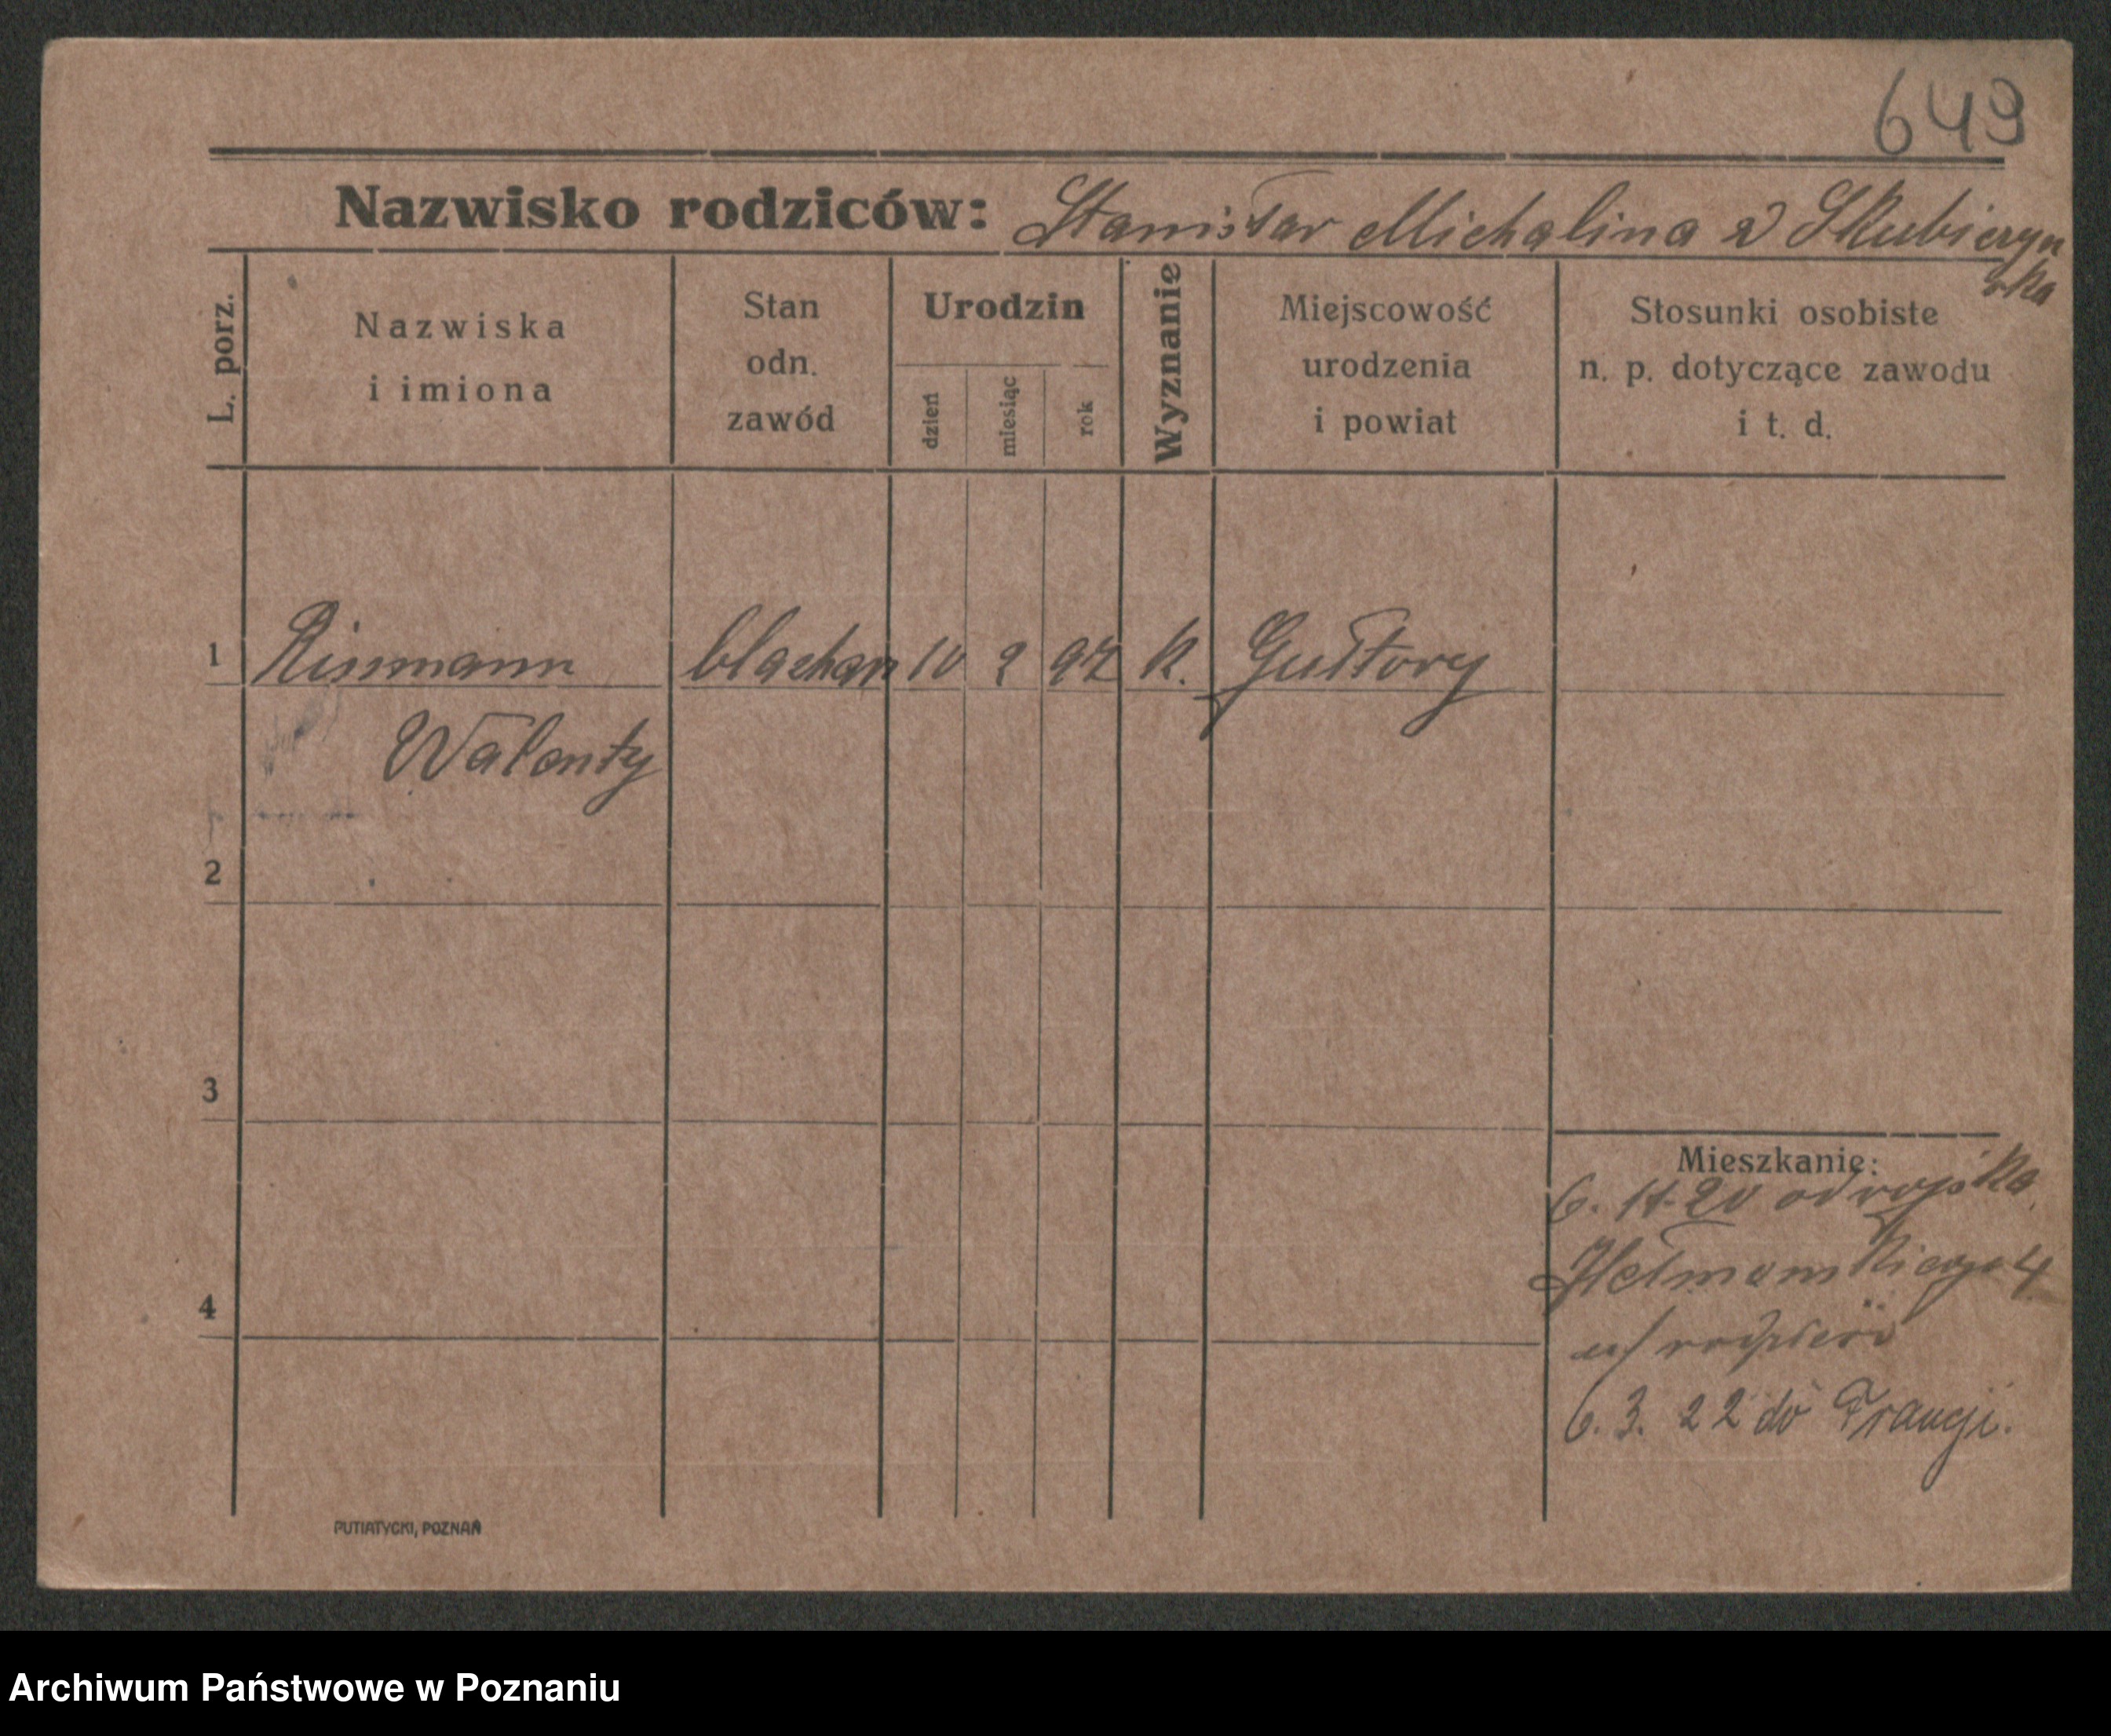 649
Nazwisko rodziców: Stanisław Michalina z Skubiszyń
ska
L. porz.
Nazwiska
i imiona
Stan
odn.
zawód
Urodzin
dzień
miesiąc
rok
Wyznanie
Miejscowość
urodzenia
i powiat
Stosunki osobiste
n. p. dotyczące zawodu
i t. d.
1 Rissmann blachar 10 2 97 k. Gułtowy
Walenty
2
3
4
Mieszkanie:
6. 11. 20 od wojska
Hetmańskiego 4
u/ rodziców
6. 3. 22 do Francji.
PUTIATYCKI, POZNAŃ
Archiwum Państwowe w Poznaniu